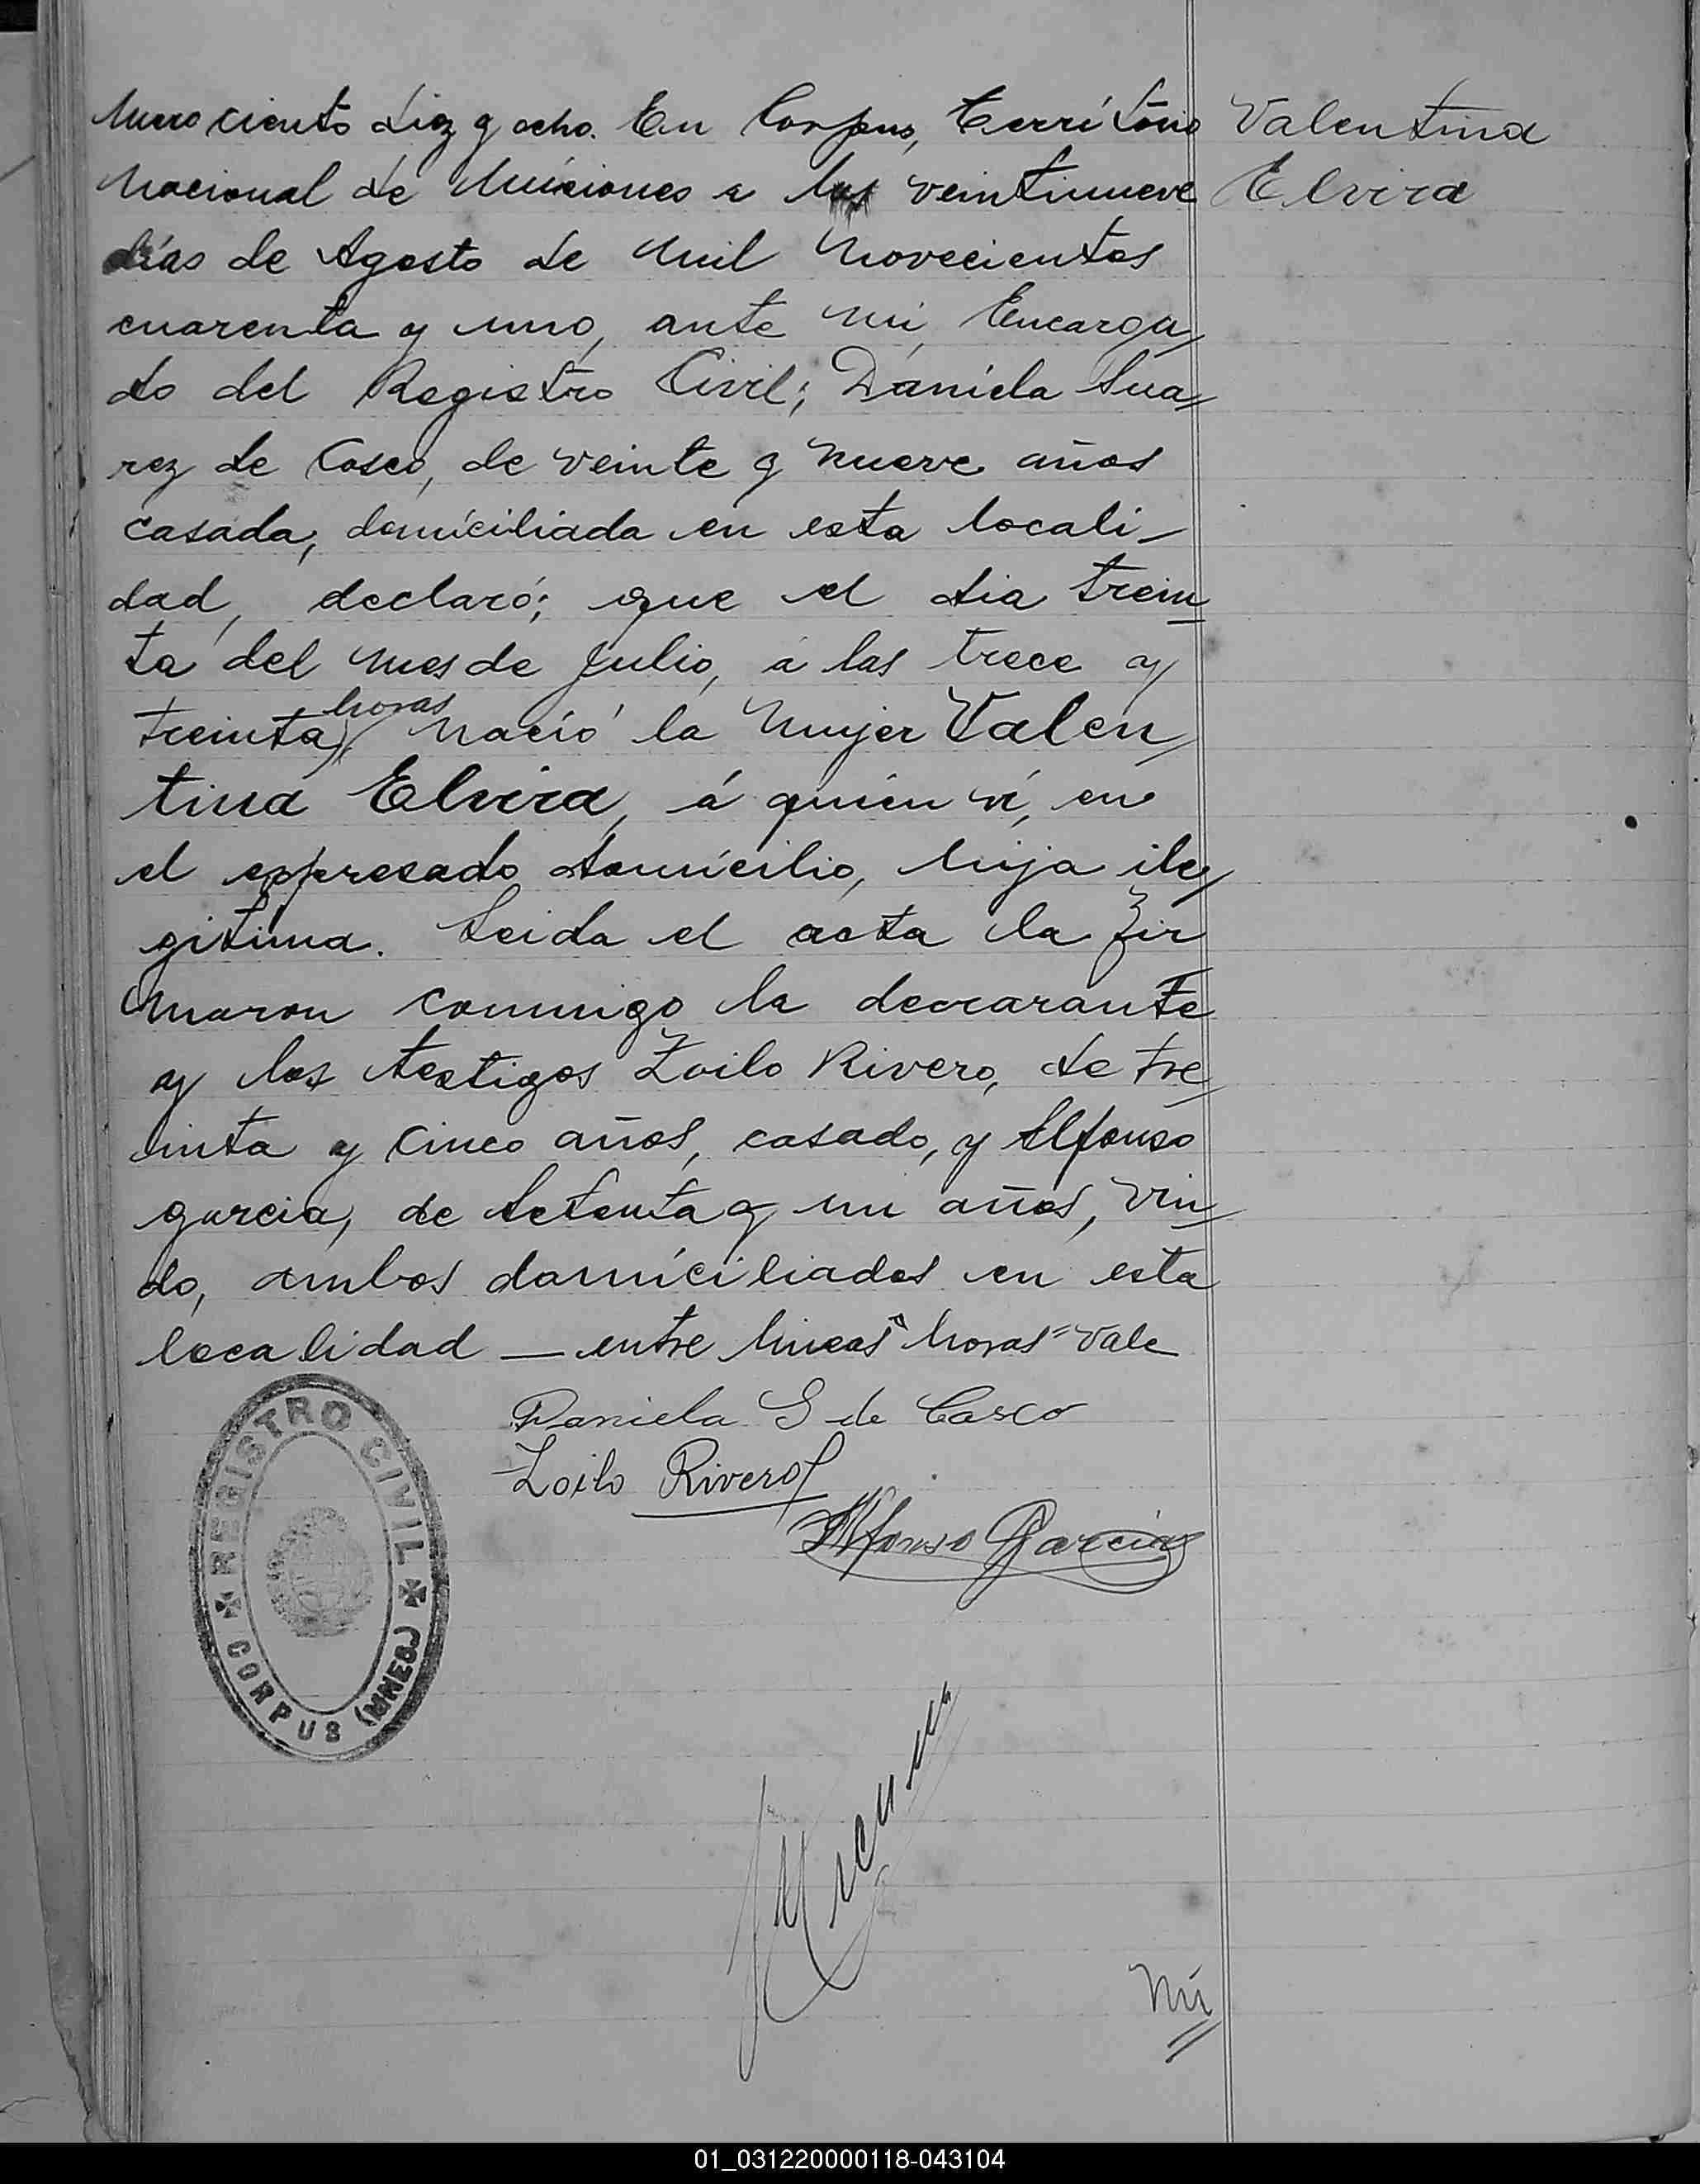 mero ciento diez y ocho. En Corpus, Territorio
Nacional de Misiones a los veintinueve
días de Agosto de mil novecientos
cuarenta y uno, ante mi, Encarga
do del Registro Civil; Daniela Sua
rez de Casco, de veinte y nueve años
casada, domiciliada en esta locali-
dad, declaró; que el dia trein
ta del mes de Julio, á las trece y
horas
treinta nació la mujer Valen
tina Elvira, á quien vi, en
el expresado domicilio, hija ile
gitima. Leida el acta la fir
maron conmigo la decrarante
y los testigos Zoilo Rivero, de tre
inta y cinco años, casado, y Alfonso
garcia, de setenta y un años, viu
do, ambos domiciliados en esta
localidad — entre lineas "horas" vale
Valentina
Elvira
Daniela S de Casco
Zoilo Rivero
Alfonso Garcia
REGISTRO CIVIL
CORPUS (MNES)
Nú
01_031220000118-043104